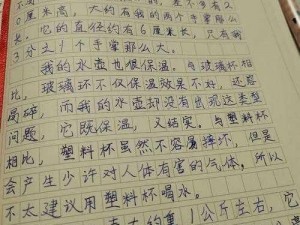 0厘米高，大约有我的两个手掌那么
。它的直径约有6厘米长，只有两
3分之1个手掌那么大。
我的水壶也很保温。与玻璃杯相
比，玻璃环不仅保温效果不好，还容
易碎，而我的水壶却没有出现这类型
问题，它既保温，又结实。与塑料杯
相比，塑料杯虽然不容易摔坏，但是
会产生少许对人体有害的气体，所以
不太建议用塑料杯喝水。
1公斤左右，它